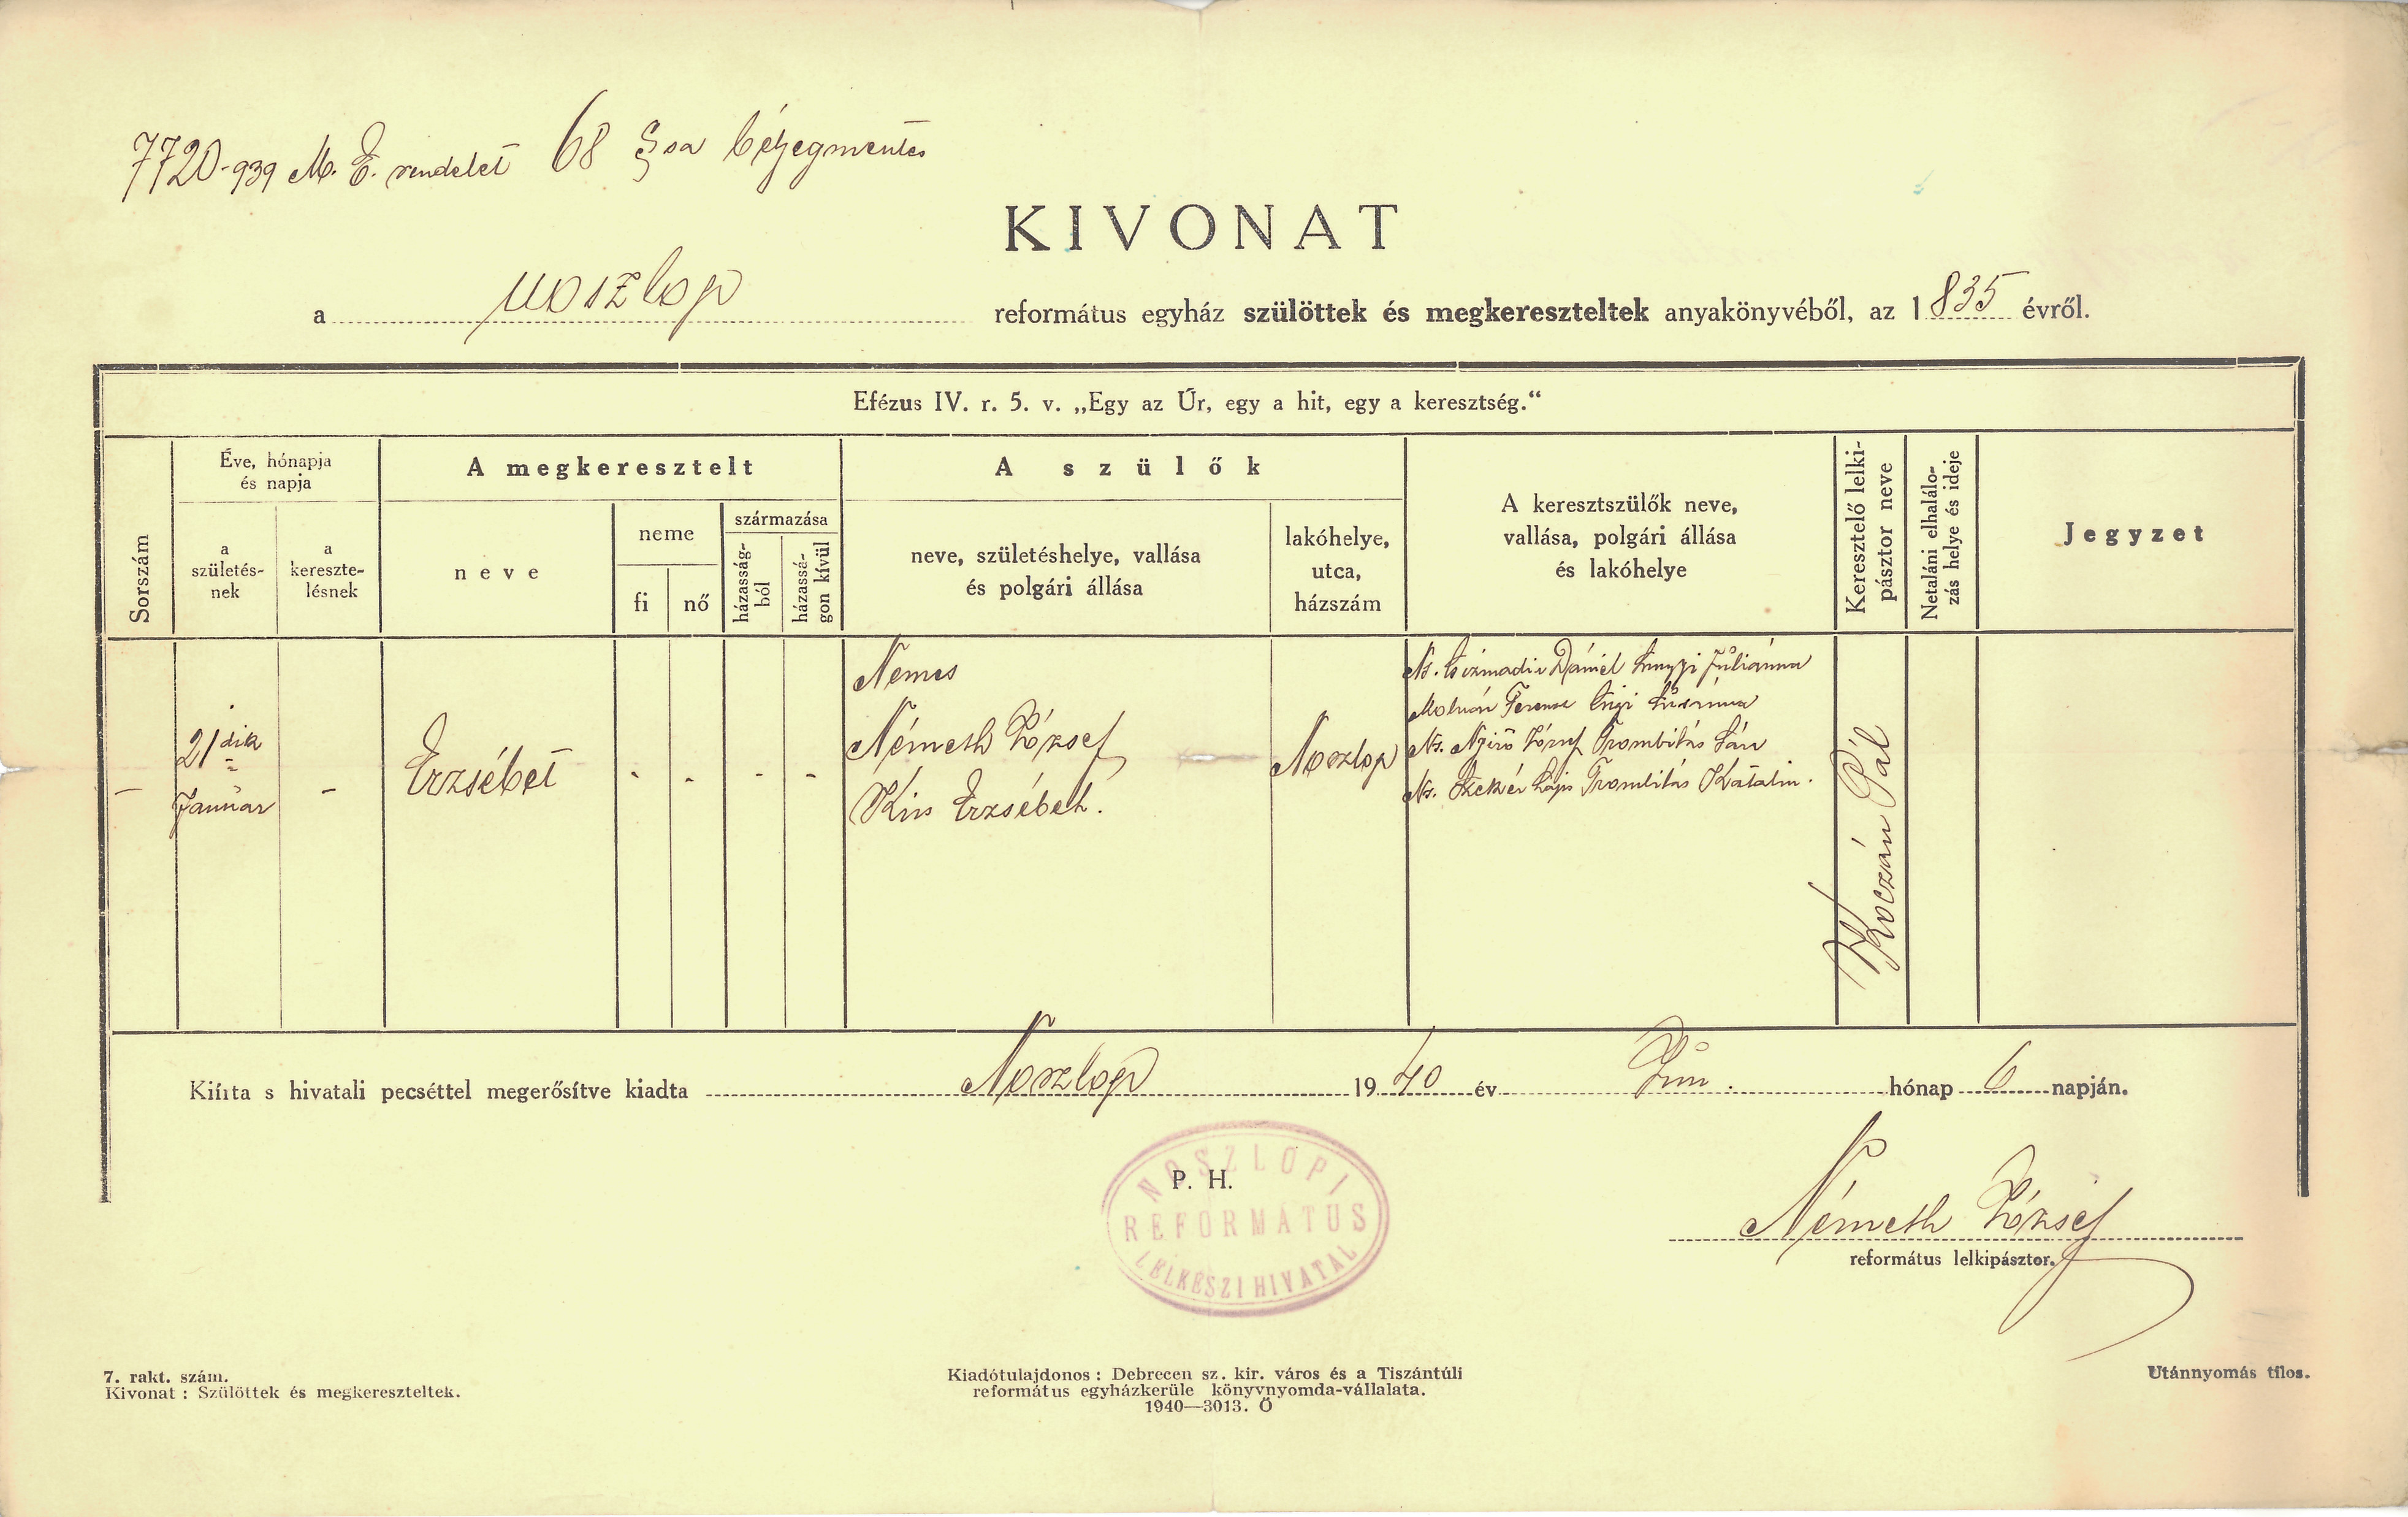 7720-939 M. E. rendelet 68 §sa bélyegmentes
KIVONAT
a noszlop református egyház szülöttek és megkereszteltek anyakönyvéből, az 1835 évről.
Efézus IV. r. 5. v. „Egy az Úr, egy a hit, egy a keresztség.“
Sorszám
Éve, hónapja
és napja
a
születés-
nek
a
keresztе-
lésnek
A megkeresztelt
neve
neme
fi
nő
származása
házasság-
ból
házassá-
gon kívül
A szülők
neve, születéshelye, vallása
és polgári állása
lakóhelye,
utca,
házszám
A keresztszülők neve,
vallása, polgári állása
és lakóhelye
Keresztelő lelki-
pásztor neve
Netaláni elhalálo-
zás helye és ideje
Jegyzet
-
21dik
Január
-
Erzsébet
-
-
-
-
Nemes
Németh József
Kis Erzsébet.
Noszlop
Ns. Csizmadia Dániel Juliánna
Molnár Ferencz
Ns. Nyirő József Trombitás Sára
Ns. Szekér Lajos Trombitás Katalin.
Koczán Pál
Kiírta s hivatali pecséttel megerősítve kiadta Noszlop 1940 év Jún. hónap 6 napján.
P. H.
NOSZLOPI
REFORMÁTUS
LELKÉSZI HIVATAL
Németh József
református lelkipásztor.
7. rakt. szám.
Kivonat : Szülöttek és megkereszteltek.
Kiadótulajdonos : Debrecen sz. kir. város és a Tiszántúli
református egyházkerüle könyvnyomda-vállalata.
1940—3013. Ő
Utánnyomás tilos.